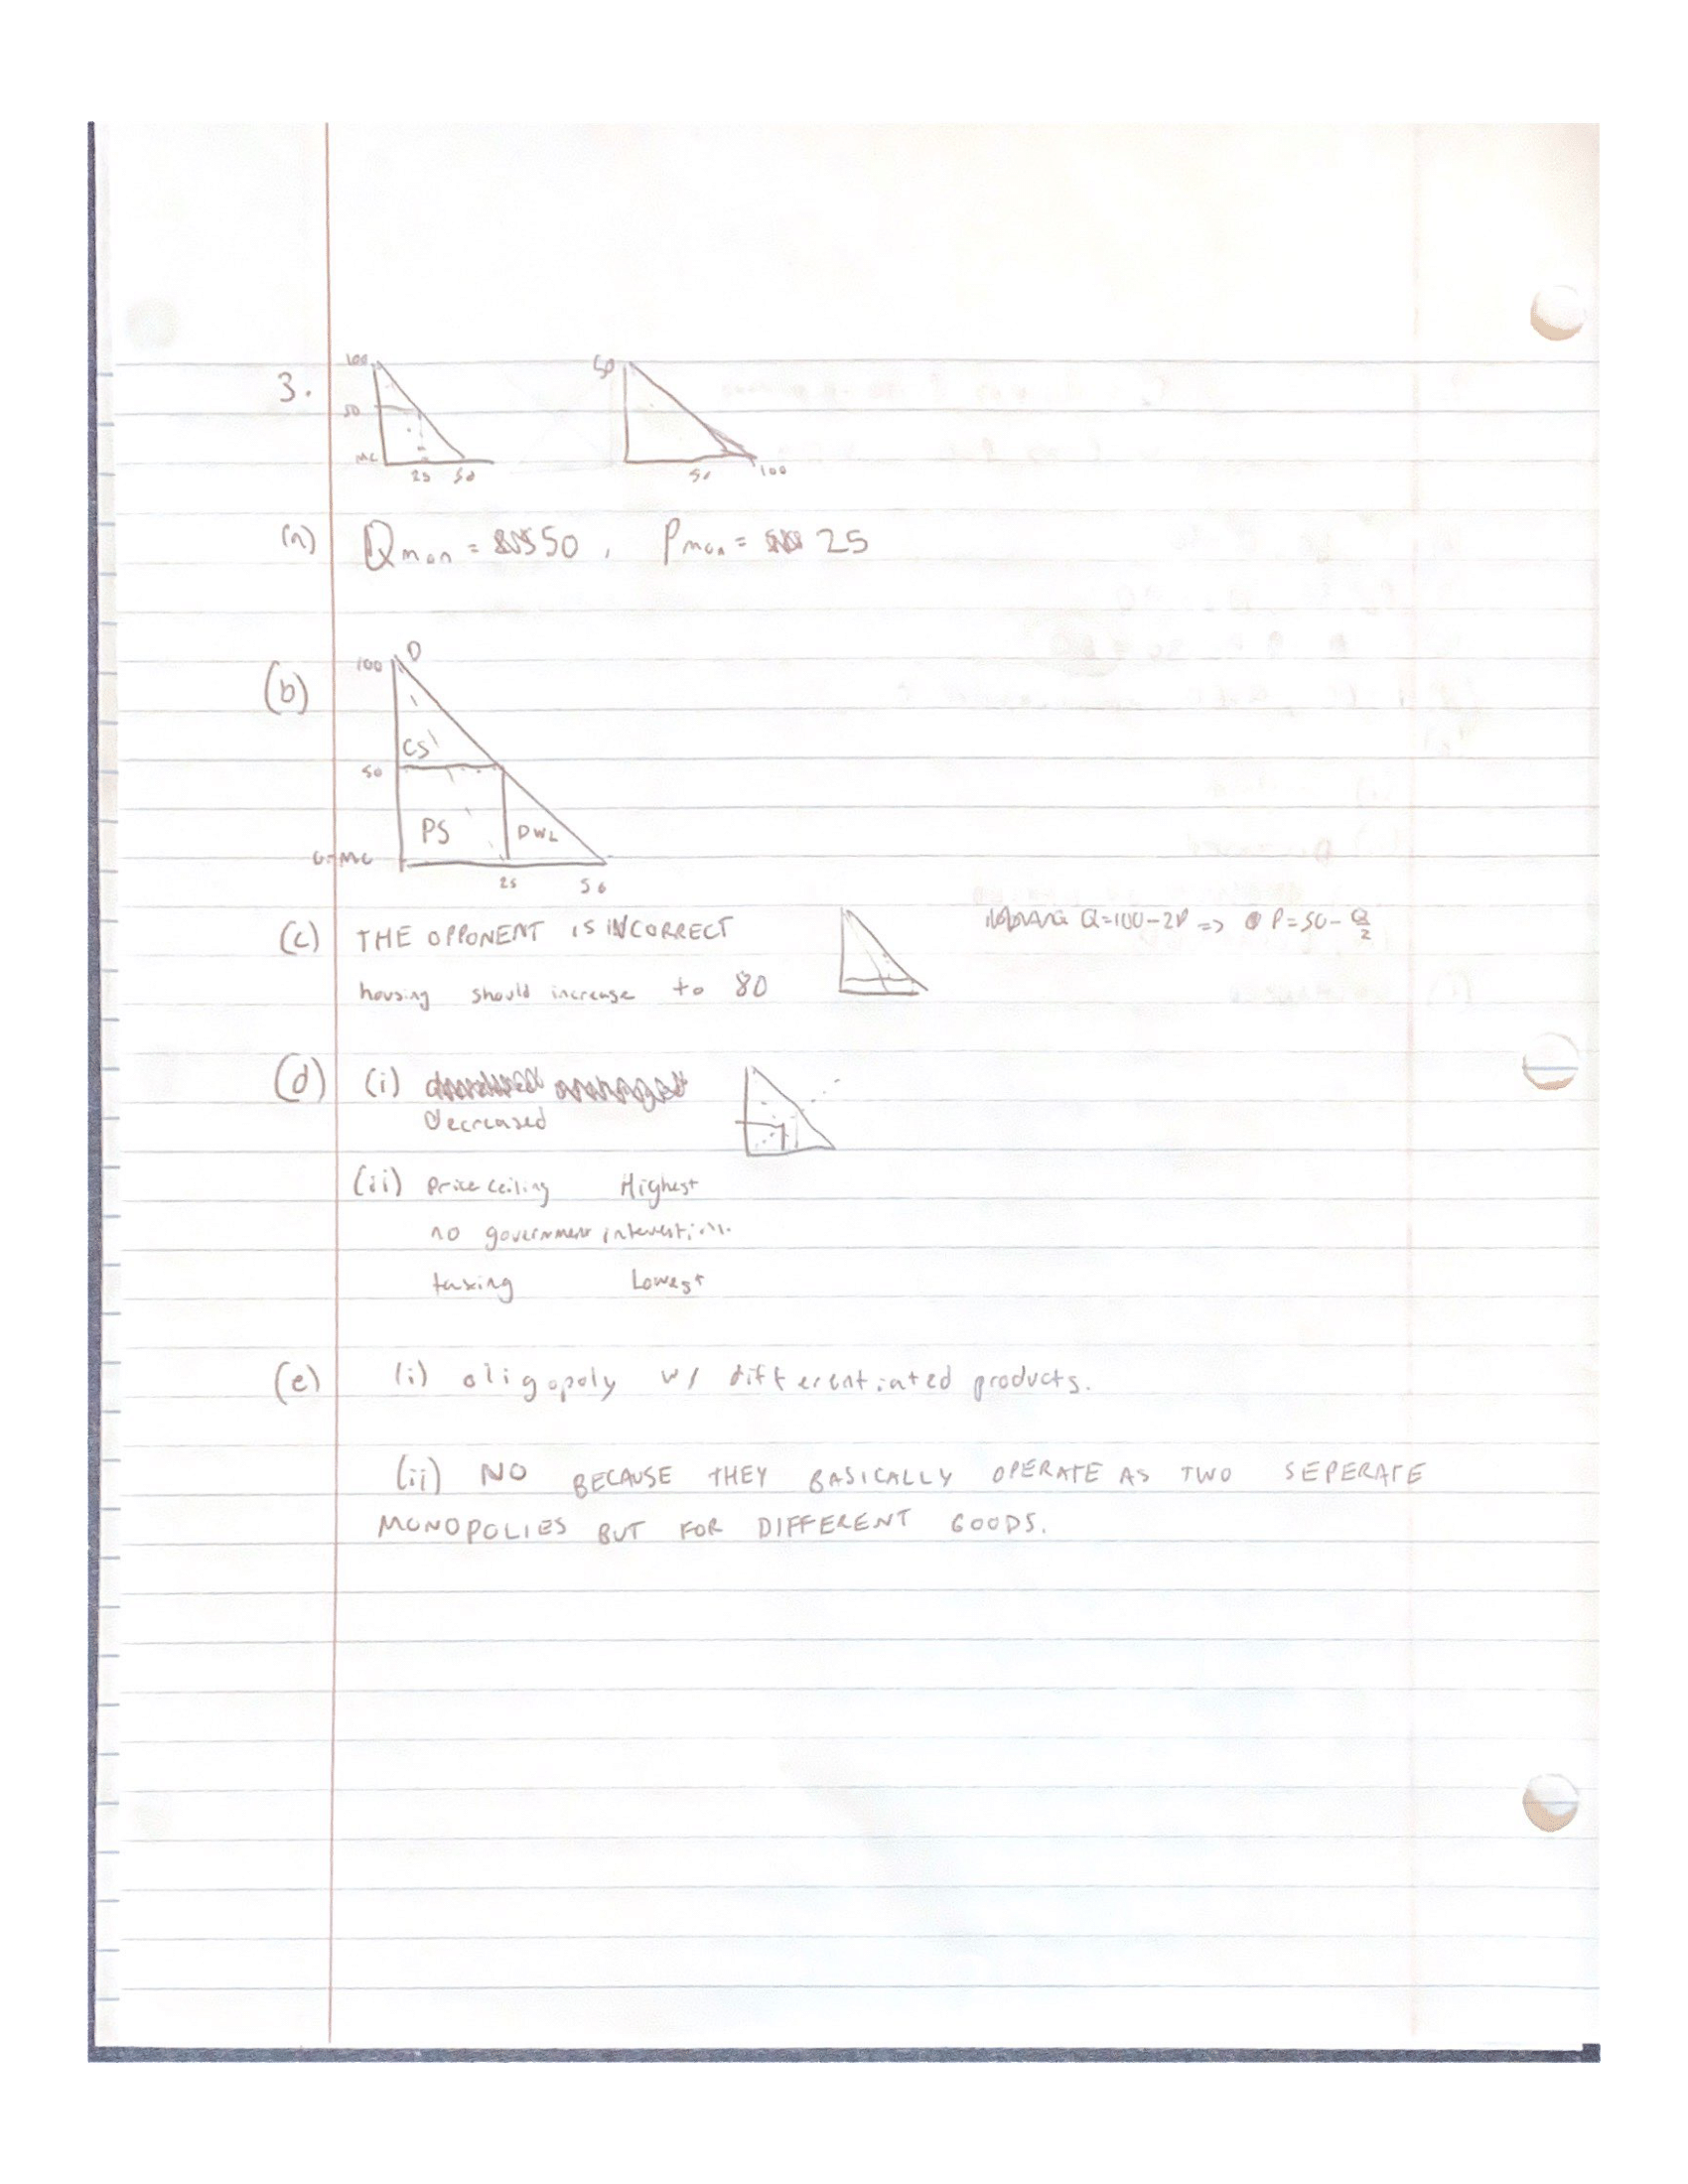 3.
100
50
MC
25 50
50
50 100
(a) Qmon = 50, Pmon = 25
(b)
100 D
CS
50
PS DWL
0=MC
25 50
(c) THE OPPONENT IS INCORRECT
Q=100-2P => P=50-Q/2
housing should increase to 80
(d) (i)
decreased
(ii) Price ceiling Highest
no government intervention.
taxing Lowest
(e) (i) oligopoly w/ differentiated products.
(ii) NO BECAUSE THEY BASICALLY OPERATE AS TWO SEPERATE
MONOPOLIES BUT FOR DIFFERENT GOODS.